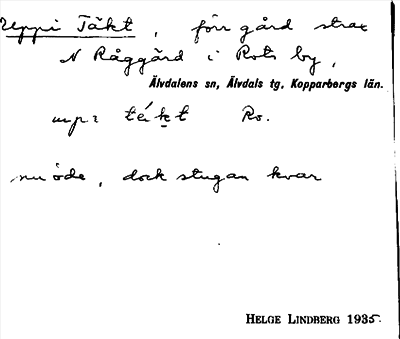 Uppi Täkt, förr gård strax
N Råggård i Rots by,
Älvdalens sn, Älvdals tg, Kopparbergs län.
upr täkt Ro.
nu öde, dock stugan kvar
HELGE LINDBERG 1935.